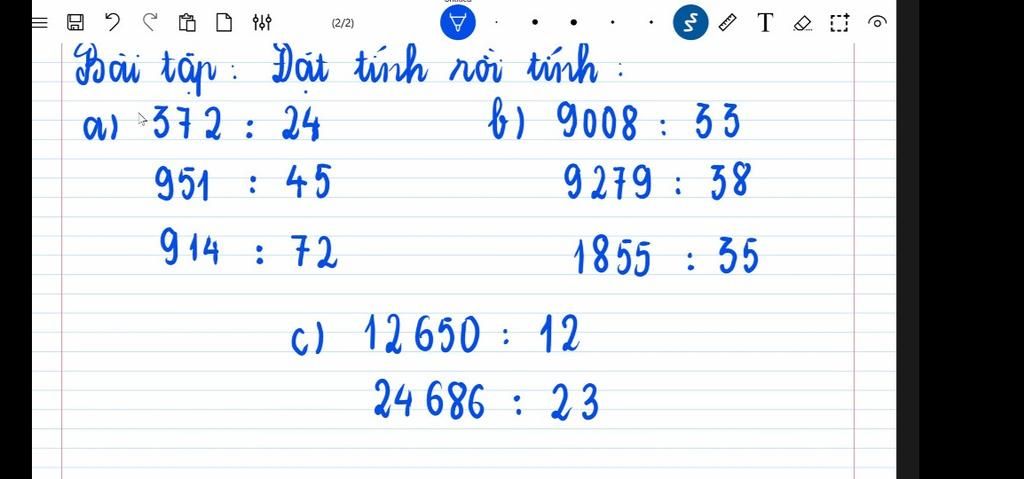 (2/2)
T
Bài tập : Đặt tính rồi tính :
a) 372 : 24
951 : 45
914 : 72
b) 9008 : 33
9279 : 38
1855 : 35
c) 12650 : 12
24686 : 23